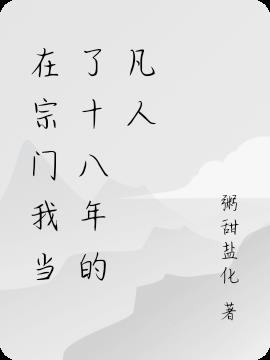 在宗门我当
了十八年的
凡人
粥甜盐化 著